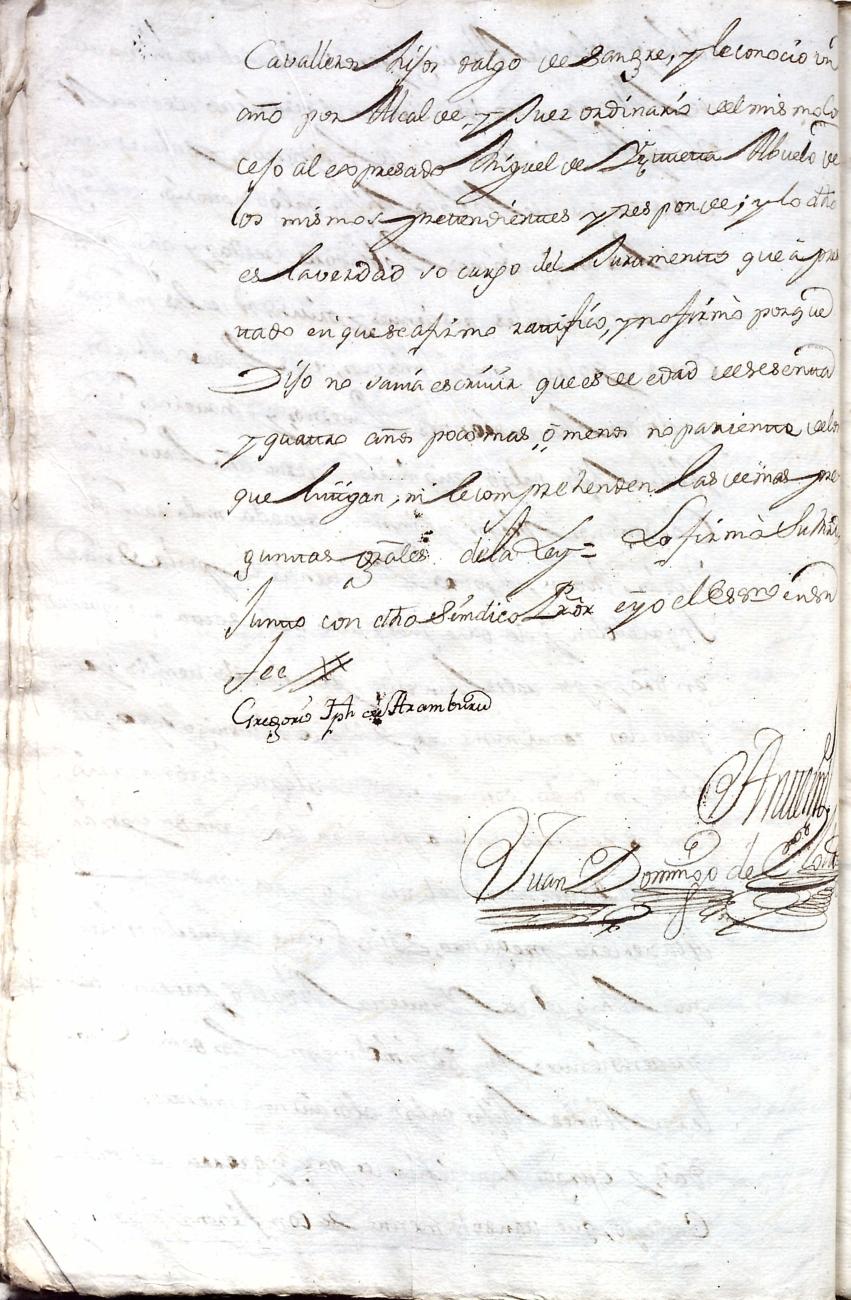 Cavalleros hijos dalgo de sangre, y le conocio un
año por Alcalde, y Juez ordinario del mismo Co
cejo al expresado Miguel de Abuelo de
los mismos pretendientes y responde; y lo dho
es la verdad so cargo del Juramento que â pres
tado en que se afirmo ratifico, y no firmò porque
Dijo no savia escrivir que es de edad de sesenta
y quattro años poco mas ô menos no pariente de los
que litigan, ni le comprehenden las demas pre
guntas grâles de la Ley = Lo firmò Su Mrd
Junto con dho Sindico Prôr e yo el Essno en
fee
Gregorio Jph de Aramburu
Antemi
Juan Domingo de